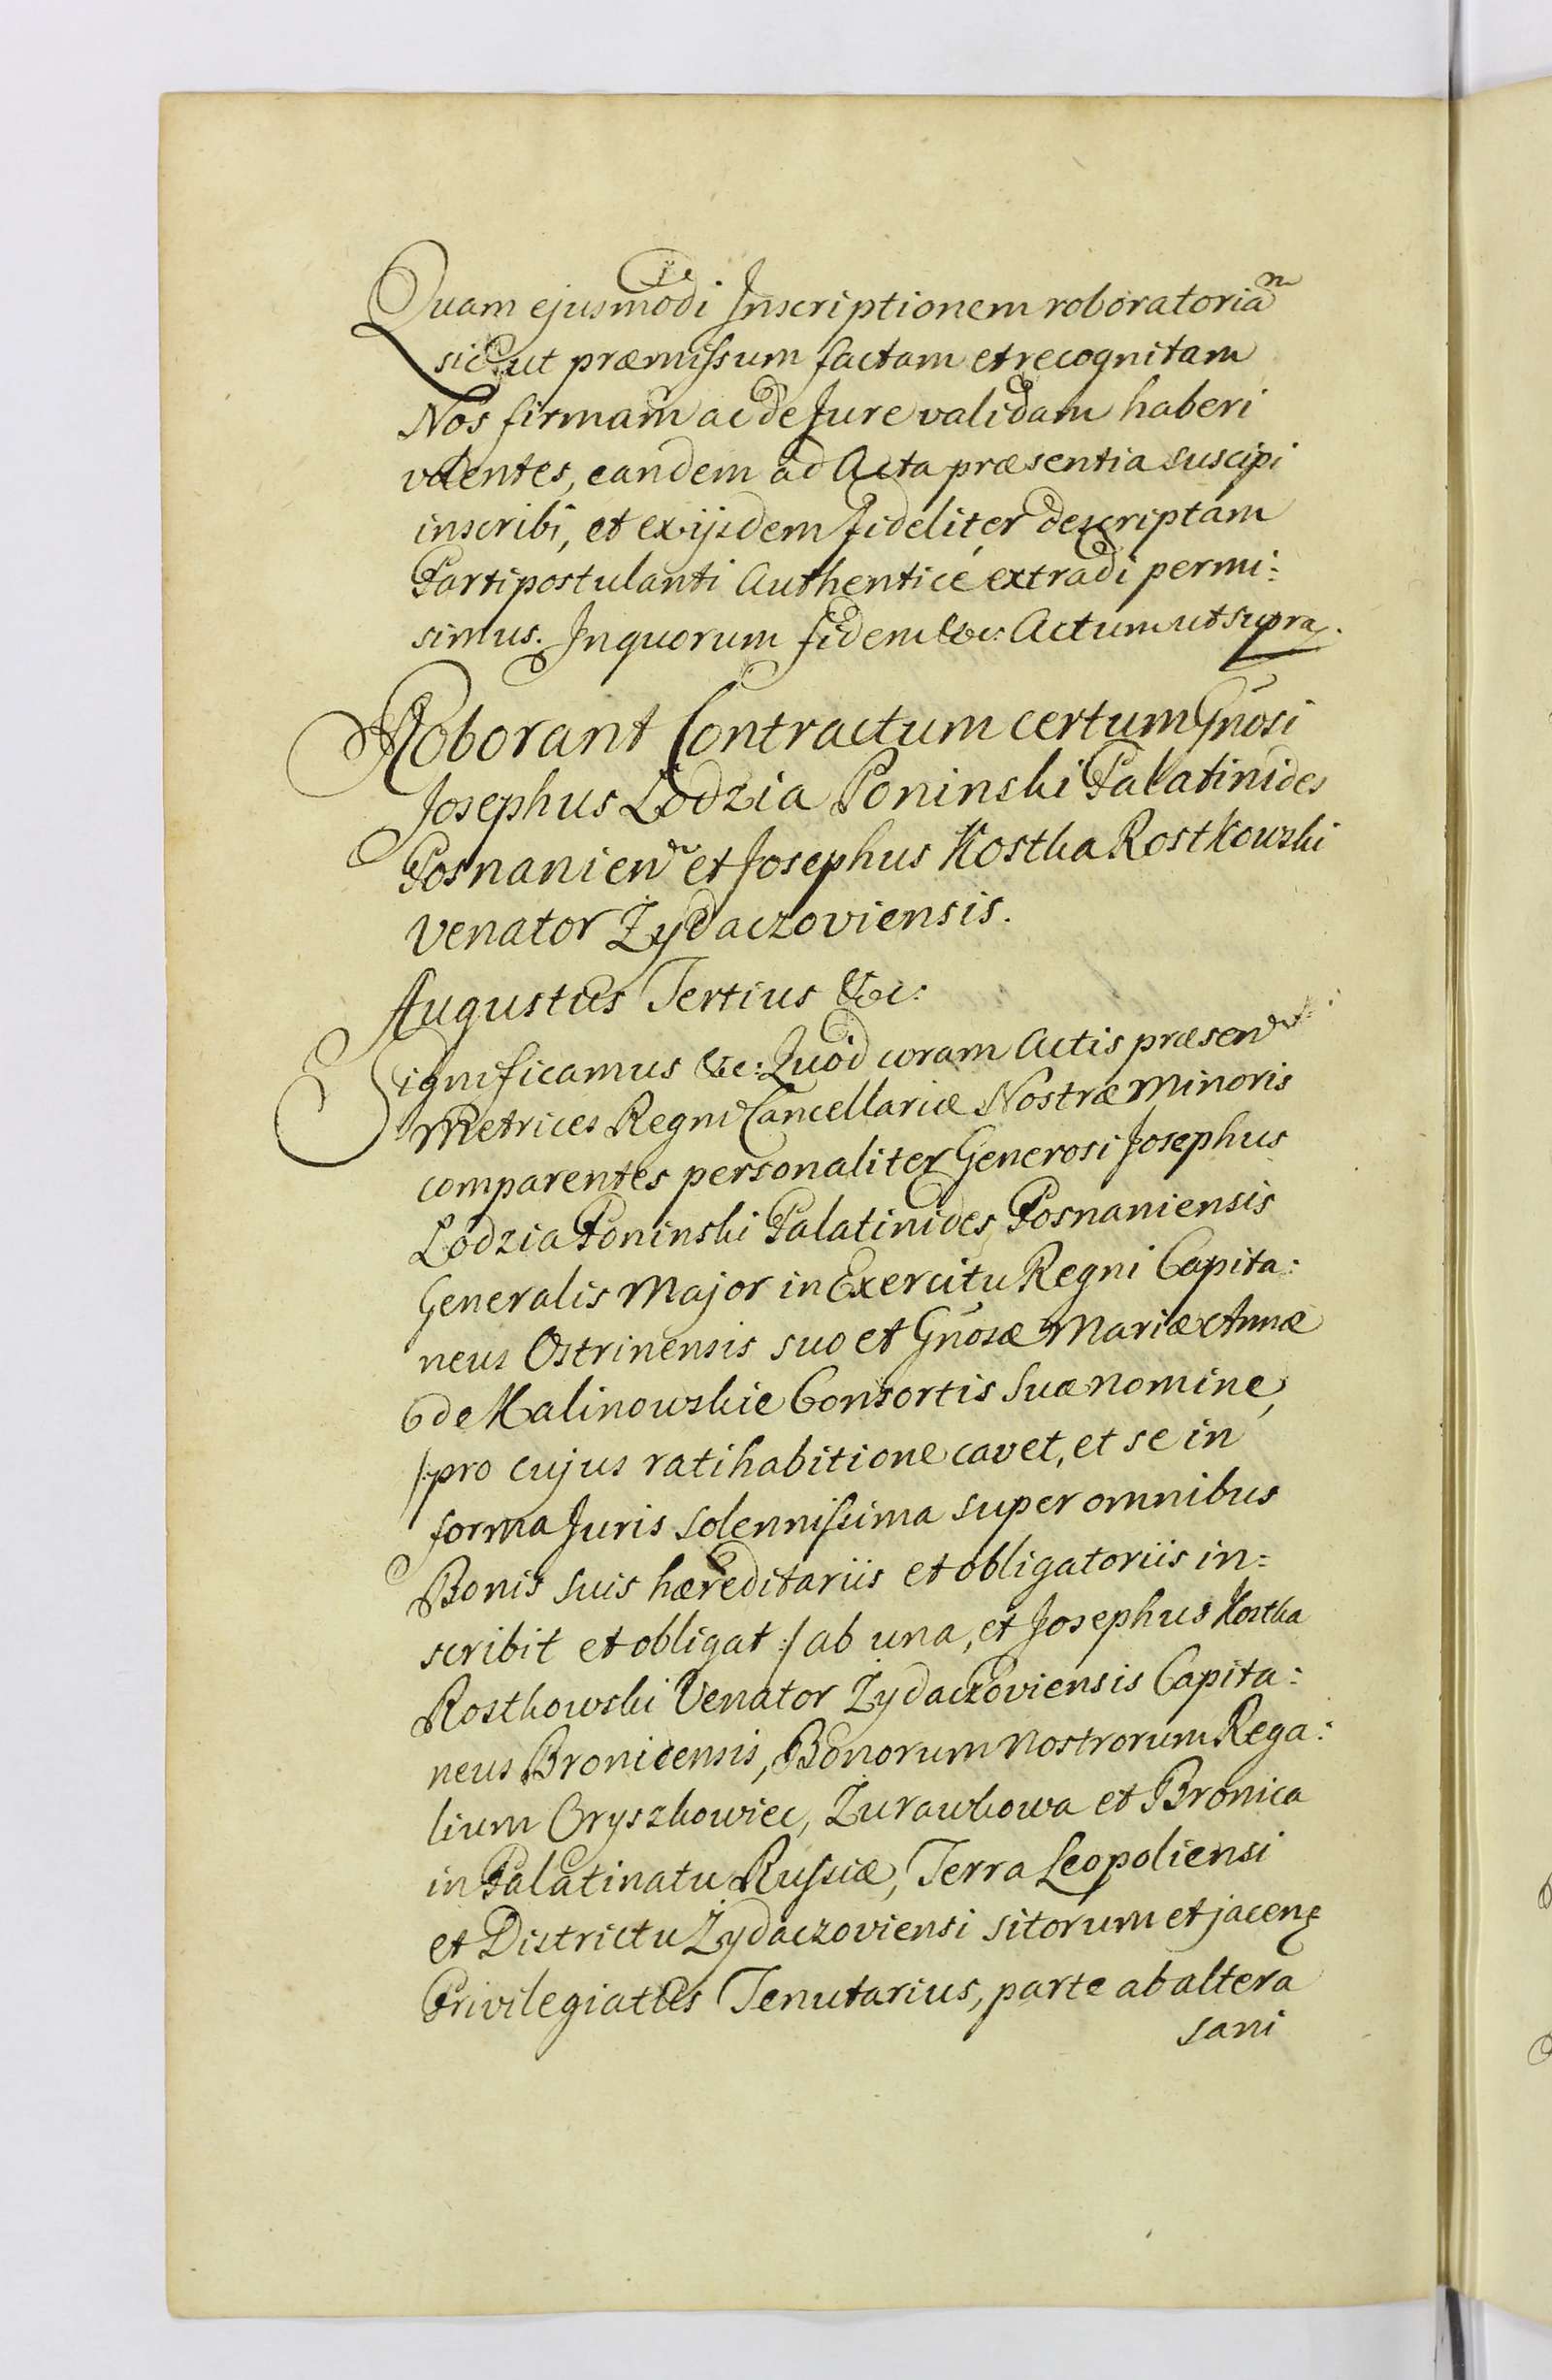 Quam ejusmodi Inscriptionem roboratoriam
sicut præmissum factam et recognitam
Nos firmam ac de Jure validam haberi
volentes, eandem ad Acta præsentia suscipi
inscribi, et ex ijsdem fideliter descriptam
Parti postulanti Authenticé extradi permi:
simus. In quorum fidem &c: Actum ut supra.
Roborant Contractum certum Gnosi
Josephus Lodzia Poninski Palatinides
Posnanien et Josephus Kostka Rostkowski
Venator Zydaczoviensis.
Augustus Tertius &c:
Significamus &c: Quod coram Actis præsen
Metrices Regni Cancellariæ Nostræ Minoris
comparentes personaliter Generosi Josephus
Lodzia Poninski Palatinides Posnaniensis
Generalis Major in Exercitu Regni Capita:
neus Ostrinensis suo et Gnosæ Mariæ Annæ
de Kalinowskie Consortis suæ nomine,
/:pro cujus ratihabitione cavet, et se in
forma Juris solennissima super omnibus
Bonis suis hæreditariis et obligatoriis in=
scribit et obligat:/ ab una, et Josephus Kostka
Rostkowski Venator Zydaczoviensis Capita:
neus Bronicensis, Bonorum nostrorum Rega:
lium Oryszkowiec, Zurawkowa et Bronica
in Palatinatu Russiæ, Terra Leopoliensi
et Districtu Zydaczoviensi sitorum et jacen
Privilegiatus Tenutarius, parte ab altera
sani